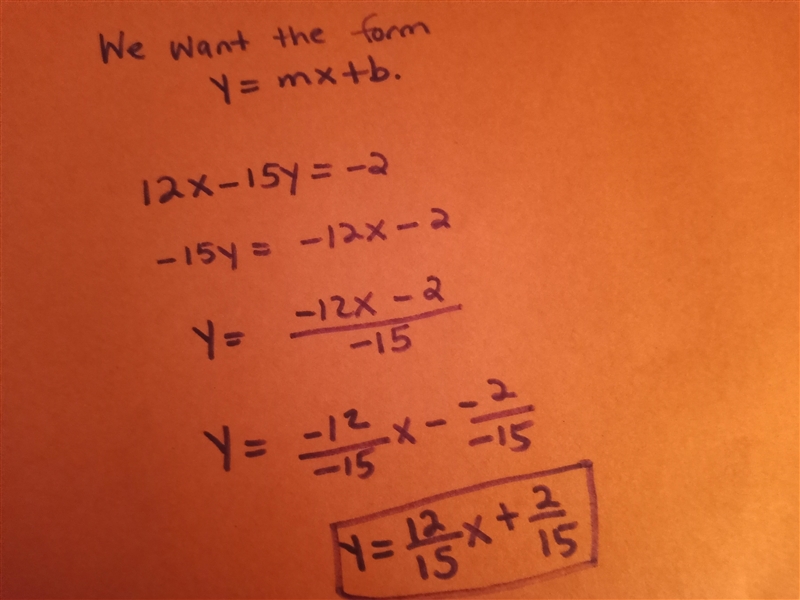 We want the form
y = mx+b.
12x-15y = -2
-15y = -12x - 2
y = \frac{-12x - 2}{-15}
y = \frac{-12}{-15}x - \frac{-2}{-15}
y = \frac{12}{15}x + \frac{2}{15}